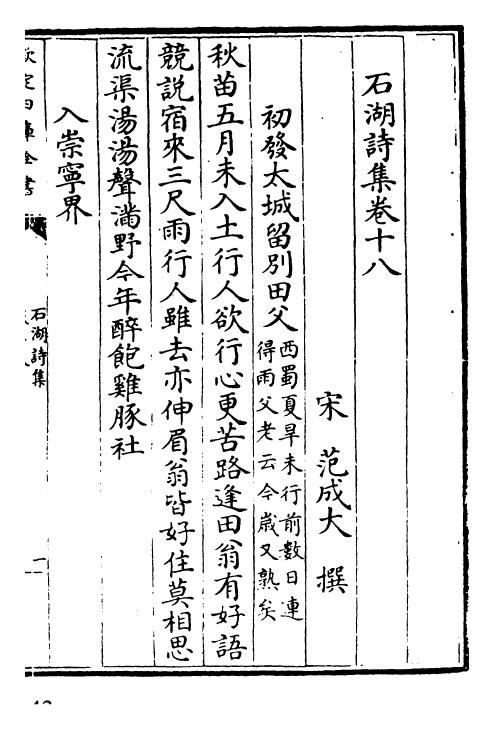 石湖詩集卷十八
宋 范成大 撰
初發太城留別田父西蜀夏旱未行前數日連
得雨父老云今歲又熟矣
秋苗五月未入土行人欲行心更苦路逢田翁有好語
競説宿來三尺雨行人雖去亦伸眉翁皆好住莫相思
流渠湯湯聲滿野今年醉飽雞豚社
入崇寧界
欽定四庫全書
石湖詩集